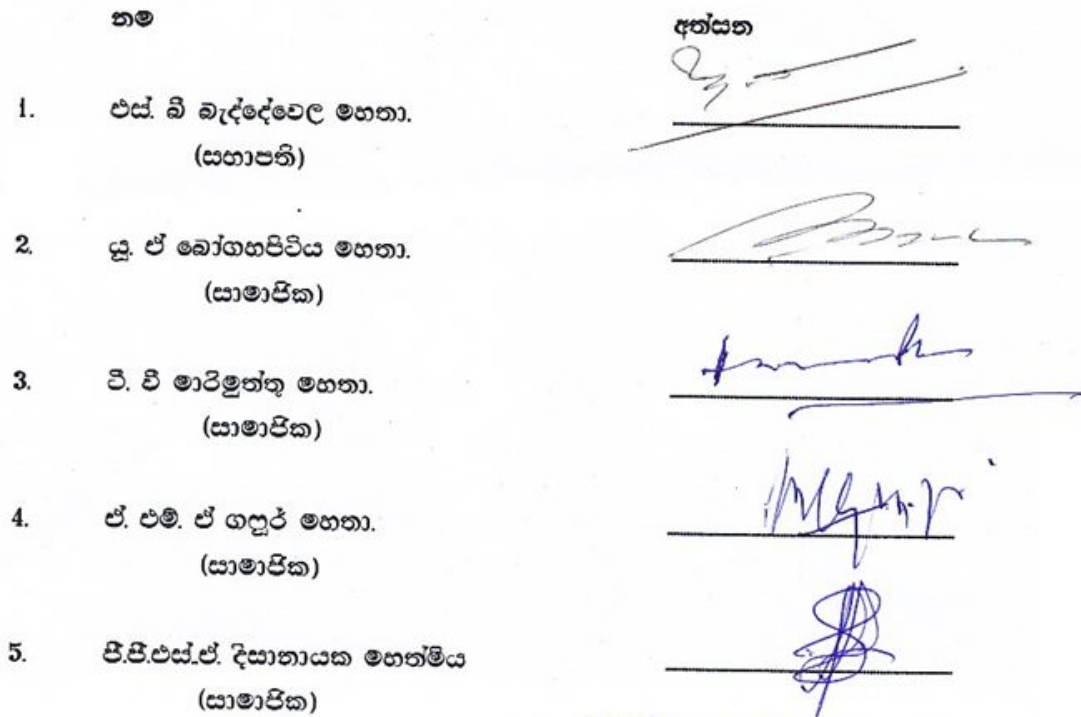 නම අත්සන
1. එස්. බී බැද්දේවෙල මහතා.
(සභාපති)
2. යූ. ඒ බෝගහපිටිය මහතා.
(සාමාජික)
3. ටී. වී මාරිමුත්තු මහතා.
(සාමාජික)
4. ඒ. එම්. ඒ ගෆූර් මහතා.
(සාමාජික)
5. ජී.පී.එස්.ඒ. දිසානායක මහත්මිය
(සාමාජික)